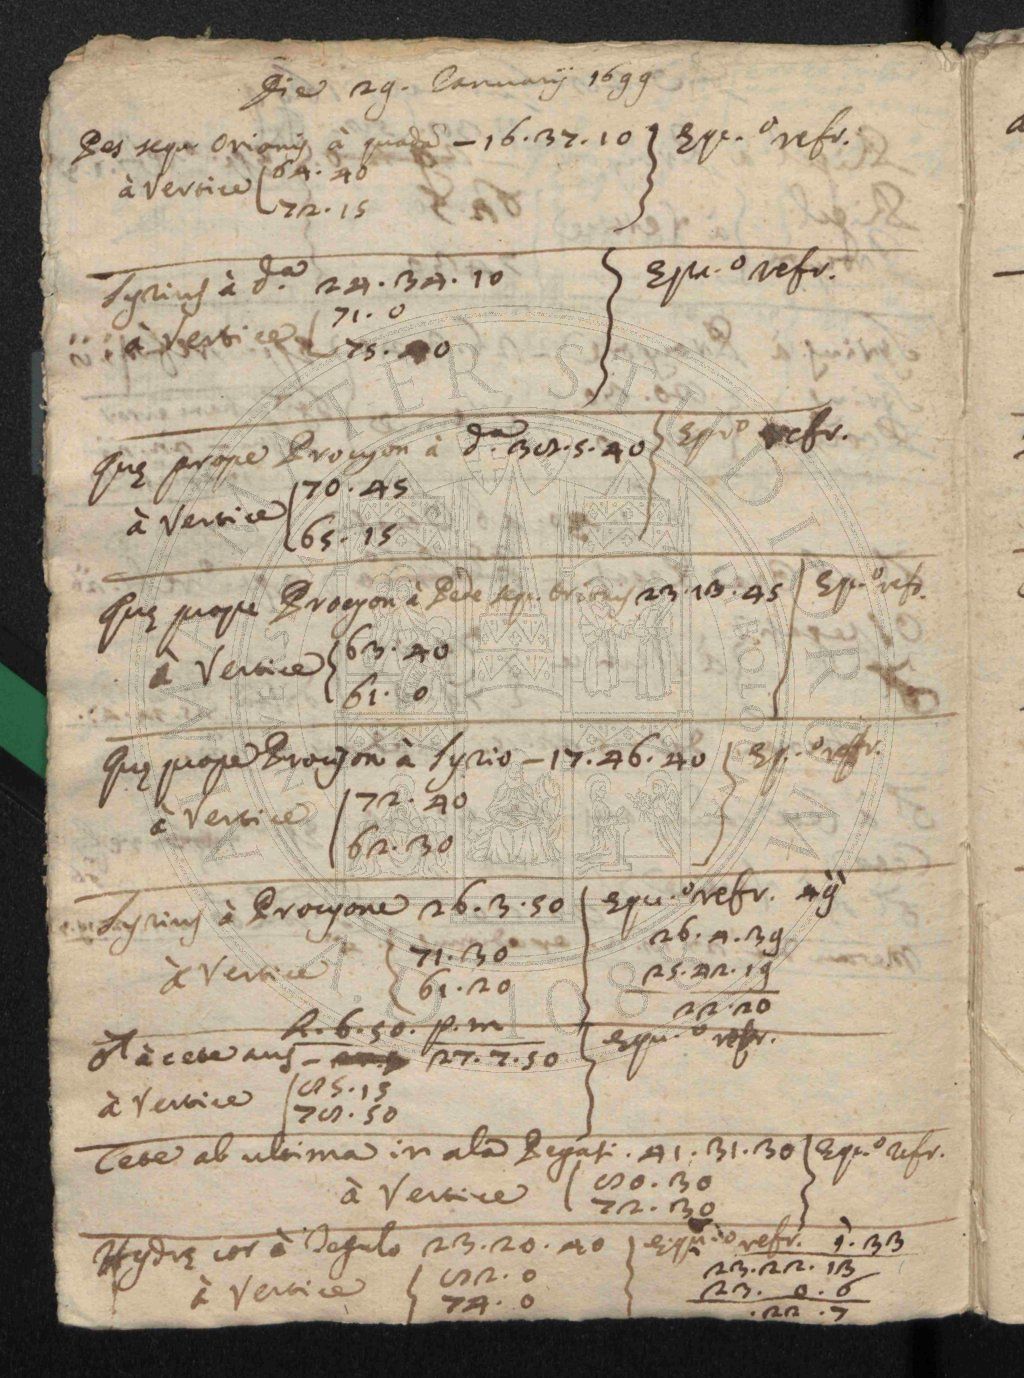 Die 29. Ianuarij 1699
Pes sequ. Orionis à quadā – 16.37.10 Equ.º refr.
à Vertice 64.40
72.15
Syrius à d.ª 24.34.10 Equ.º refr.
à Vertice 71.0
75.40
Quę prope Procyon à d.ª 38.5.40 Equº refr.
à Vertice 70.45
65.15
Quę prope Procyon à Pede sequ. Orionis 23.13.45 Equ.º refr.
à Vertice 63.40
61.0
Quę prope Procyon à Syrio – 17.46.40 Equ.º refr.
à Vertice 72.40
62.30
Syrius à Procyone 26.3.50 Equ.º refr. 49
26.4.39
à Vertice 71.30
61.20
25.42.19
22.20
h. 6.50. p.m
à cete aus – 27.7.50 Equ.º refr.
à Vertice 85.15
78.50
Cete ab ultima in alā Pegasi. 41.31.30 Equ.º refr.
à Vertice 80.30
72.30
Hydrę cor à Regulo 23.20.40 Equ.º refr. 1.33
à Vertice 82.0
74.0
23.22.13
23.0.6
.22.7